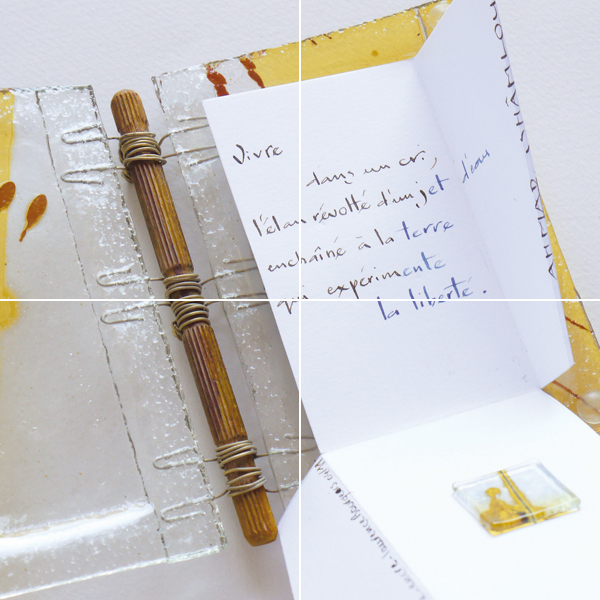 Vivre
dans un cri,
l'élan révolté d'un jet d'eau
enchaîné à la terre
qui expérimente
la liberté.
AHMAD CHÂMLOU